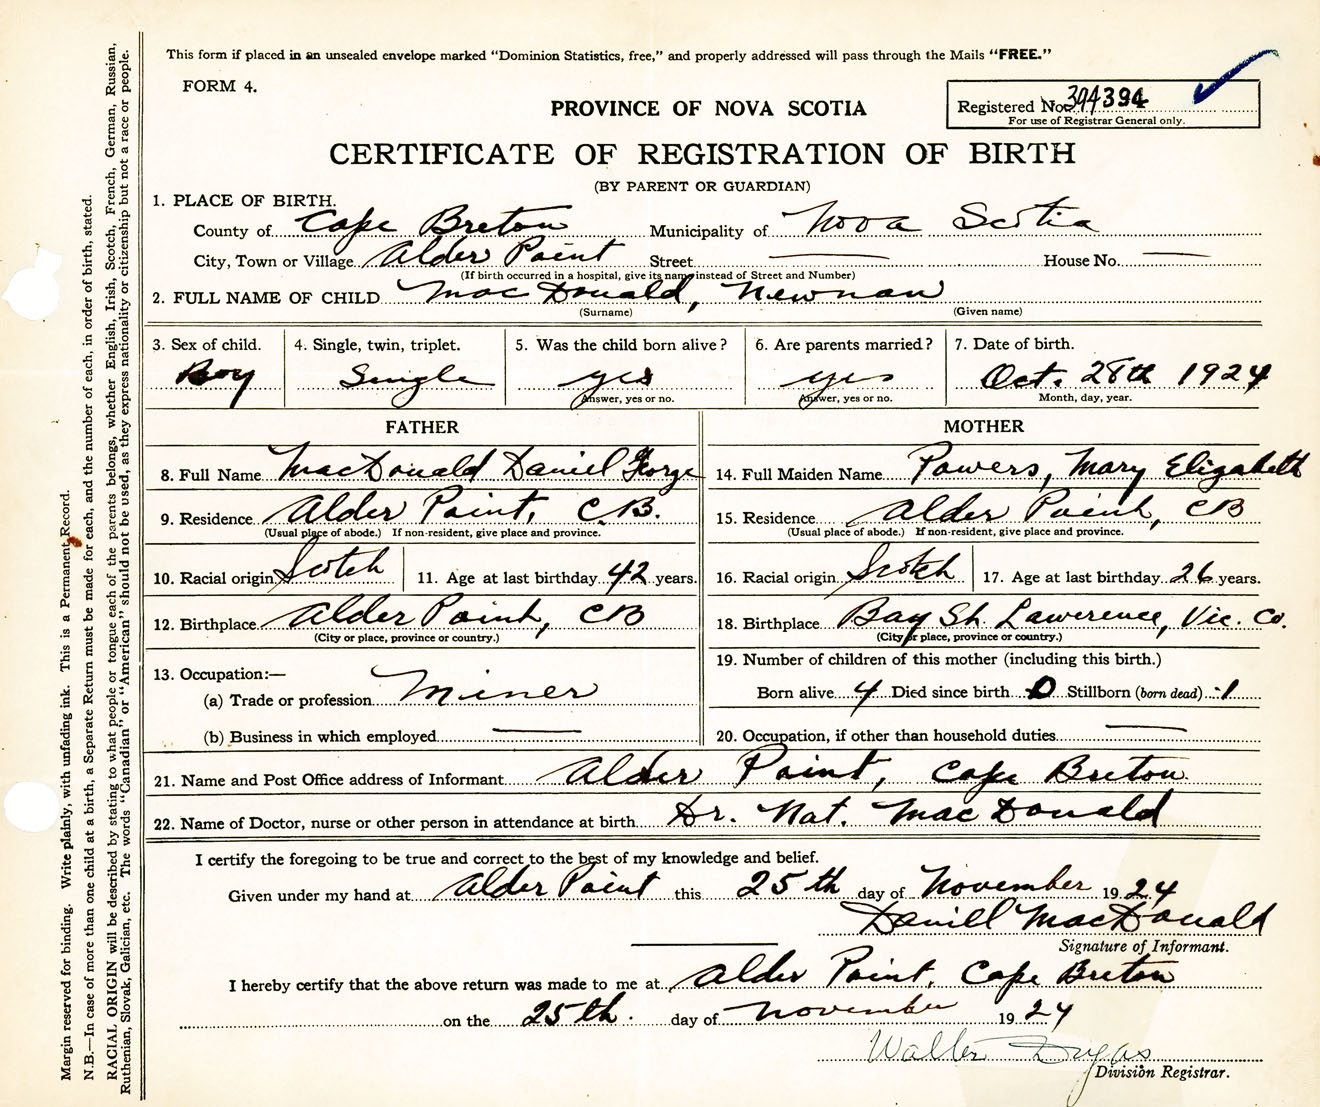 This form if placed in an unsealed envelope marked "Dominion Statistics, free," and properly addressed will pass through the Mails "FREE."
FORM 4.
Registered No. 394394
For use of Registrar General only.
PROVINCE OF NOVA SCOTIA
CERTIFICATE OF REGISTRATION OF BIRTH
(BY PARENT OR GUARDIAN)
1. PLACE OF BIRTH.
County of Cape Breton Municipality of Nova Scotia
City, Town or Village Alder Point Street — House No. —
(If birth occurred in a hospital, give its name instead of Street and Number)
2. FULL NAME OF CHILD MacDonald, Newman
(Surname) (Given name)
3. Sex of child. 4. Single, twin, triplet. 5. Was the child born alive? 6. Are parents married? 7. Date of birth.
Boy Single yes yes Oct. 28th 1924
Answer, yes or no. Answer, yes or no. Month, day, year.
FATHER MOTHER
8. Full Name MacDonald Daniel George 14. Full Maiden Name Powers, Mary Elizabeth
9. Residence Alder Point, C.B. 15. Residence Alder Point, CB
(Usual place of abode.) If non-resident, give place and province. (Usual place of abode.) If non-resident, give place and province.
10. Racial origin Scotch 11. Age at last birthday 42 years. 16. Racial origin Scotch 17. Age at last birthday 26 years.
12. Birthplace Alder Point, CB 18. Birthplace Bay St. Lawerence, Vic. Co.
(City or place, province or country.) (City or place, province or country.)
13. Occupation:— 19. Number of children of this mother (including this birth.)
(a) Trade or profession Miner Born alive 4 Died since birth 0 Stillborn (born dead) 1
(b) Business in which employed — 20. Occupation, if other than household duties —
21. Name and Post Office address of Informant Alder Point, Cape Breton
22. Name of Doctor, nurse or other person in attendance at birth. Dr. Nat. MacDonald
I certify the foregoing to be true and correct to the best of my knowledge and belief.
Given under my hand at Alder Point this 25th day of November 1924
Daniell MacDonald
Signature of Informant.
I hereby certify that the above return was made to me at Alder Point, Cape Breton
on the 25th. day of November 1924
Walter Dugas
Division Registrar.
Margin reserved for binding. Write plainly, with unfading ink. This is a Permanent Record.
N.B.—In case of more than one child at a birth, a Separate Return must be made for each, and the number of each, in order of birth, stated.
RACIAL ORIGIN will be described by stating to what people or tongue each of the parents belongs, whether English, Irish, Scotch, French, German, Russian,
Ruthenian, Slovak, Galician, etc. The words "Canadian" or "American" should not be used, as they express nationality or citizenship but not a race or people.